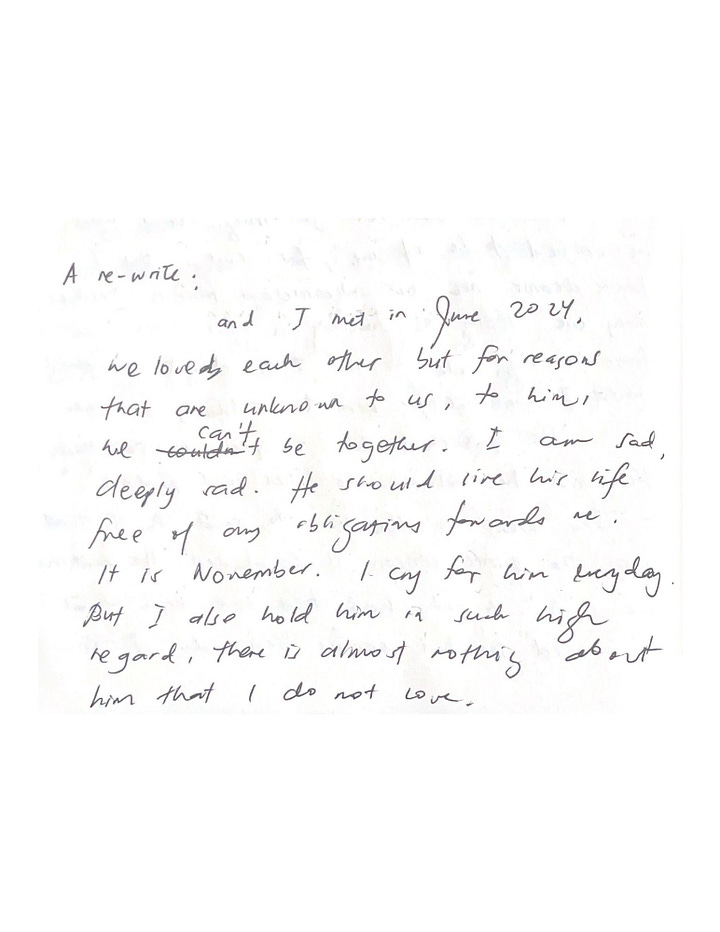 A re-write:
and I met in June 2024.
we loved each other but for reasons
that are unknown to us, to him,
can't
we couldn't be together. I am sad,
deeply sad. He should live his life
free of any obligations towards me.
It is November. I cry for him everyday.
But I also hold him in such high
regard, there is almost nothing about
him that I do not love.